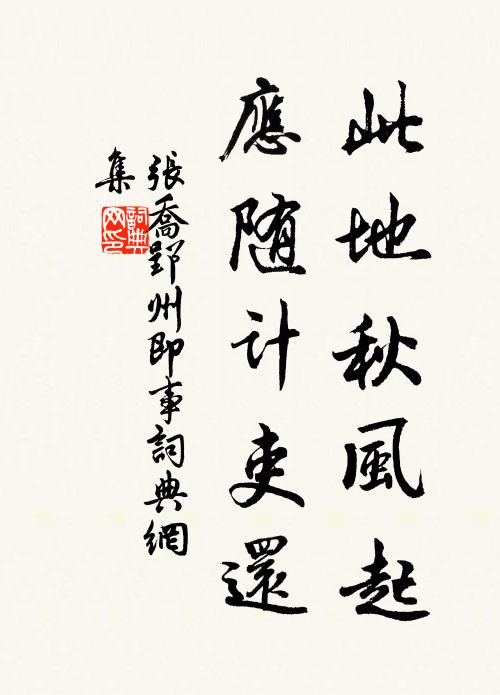 此地秋風起
應随計吏還
張喬郢州即事詞典網
集
詞典
网印